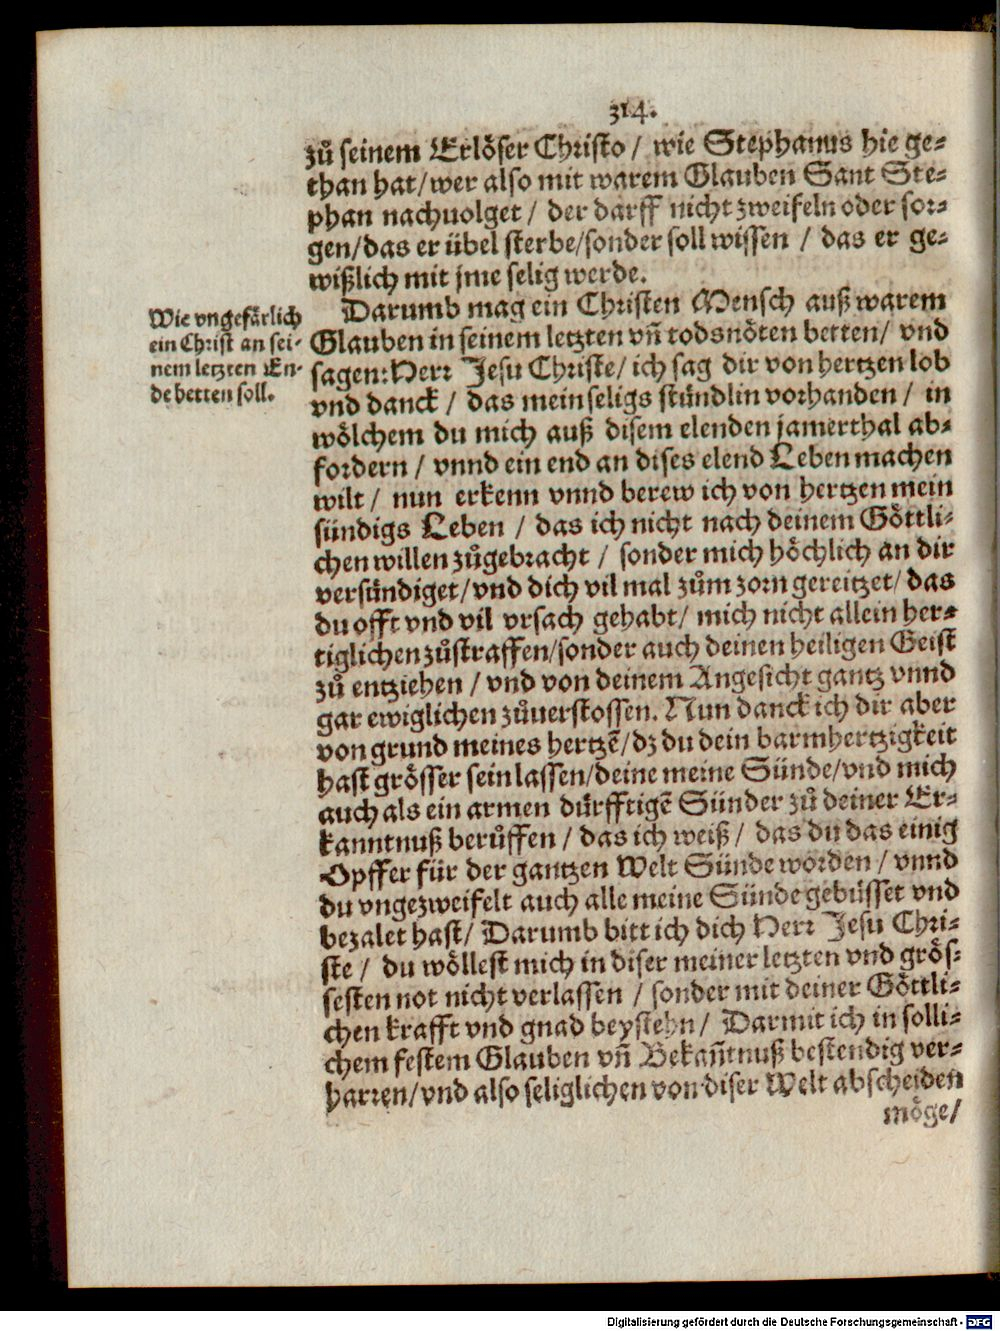 314.
zů seinem Erlöser Christo / wie Stephanus hie ge-
than hat/wer also mit warem Glauben Sant Ste-
phan nachuolget / der darff nicht zweifeln oder sor-
gen/das er übel sterbe/sonder soll wissen / das er ge-
wißlich mit jme selig werde.
Wie vngefärlich
ein Christ an sei-
nem letzten En-
de betten soll.
Darumb mag ein Christen Mensch auß warem
Glauben in seinem letzten vñ todsnöten betten/ vnd
sagen: Herr Jesu Christe/ ich sag dir von hertzen lob
vnd danck / das mein seligs stündlin vorhanden / in
wölchem du mich auß disem elenden jamerthal ab-
fordern / vnnd ein end an dises elend Leben machen
wilt / nun erkenn vnnd berew ich von hertzen mein
sündigs Leben / das ich nicht nach deinem Göttli-
chen willen zůgebracht / sonder mich höchlich an dir
versündiget/vnd dich vil mal zům zorn gereitzet/ das
du offt vnd vil vrsach gehabt/ mich nicht allein her-
tiglichen zůstraffen/sonder auch deinen heiligen Geist
zů entziehen / vnd von deinem Angesicht gantz vnnd
gar ewiglichen zůuerstossen. Nun danck ich dir aber
von grund meines hertzē/dz du dein barmhertzigkeit
hast grösser sein lassen/deine meine Sünde/vnd mich
auch als ein armen dürfftigē Sünder zů deiner Er-
kanntnuß berůffen / das ich weiß / das du das einig
Opffer für der gantzen Welt Sünde worden / vnnd
du vngezweifelt auch alle meine Sünde gebüsset vnd
bezalet hast/ Darumb bitt ich dich Herr Jesu Chri-
ste / du wöllest mich in diser meiner letzten vnd grös-
sesten not nicht verlassen / sonder mit deiner Göttli-
chen krafft vnd gnad beystehn / Darmit ich in solli-
chem festem Glauben vñ Bekañtnuß bestendig ver-
harren/vnd also seliglichen von diser Welt abscheiden
möge/
Digitalisierung gefördert durch die Deutsche Forschungsgemeinschaft - DFG